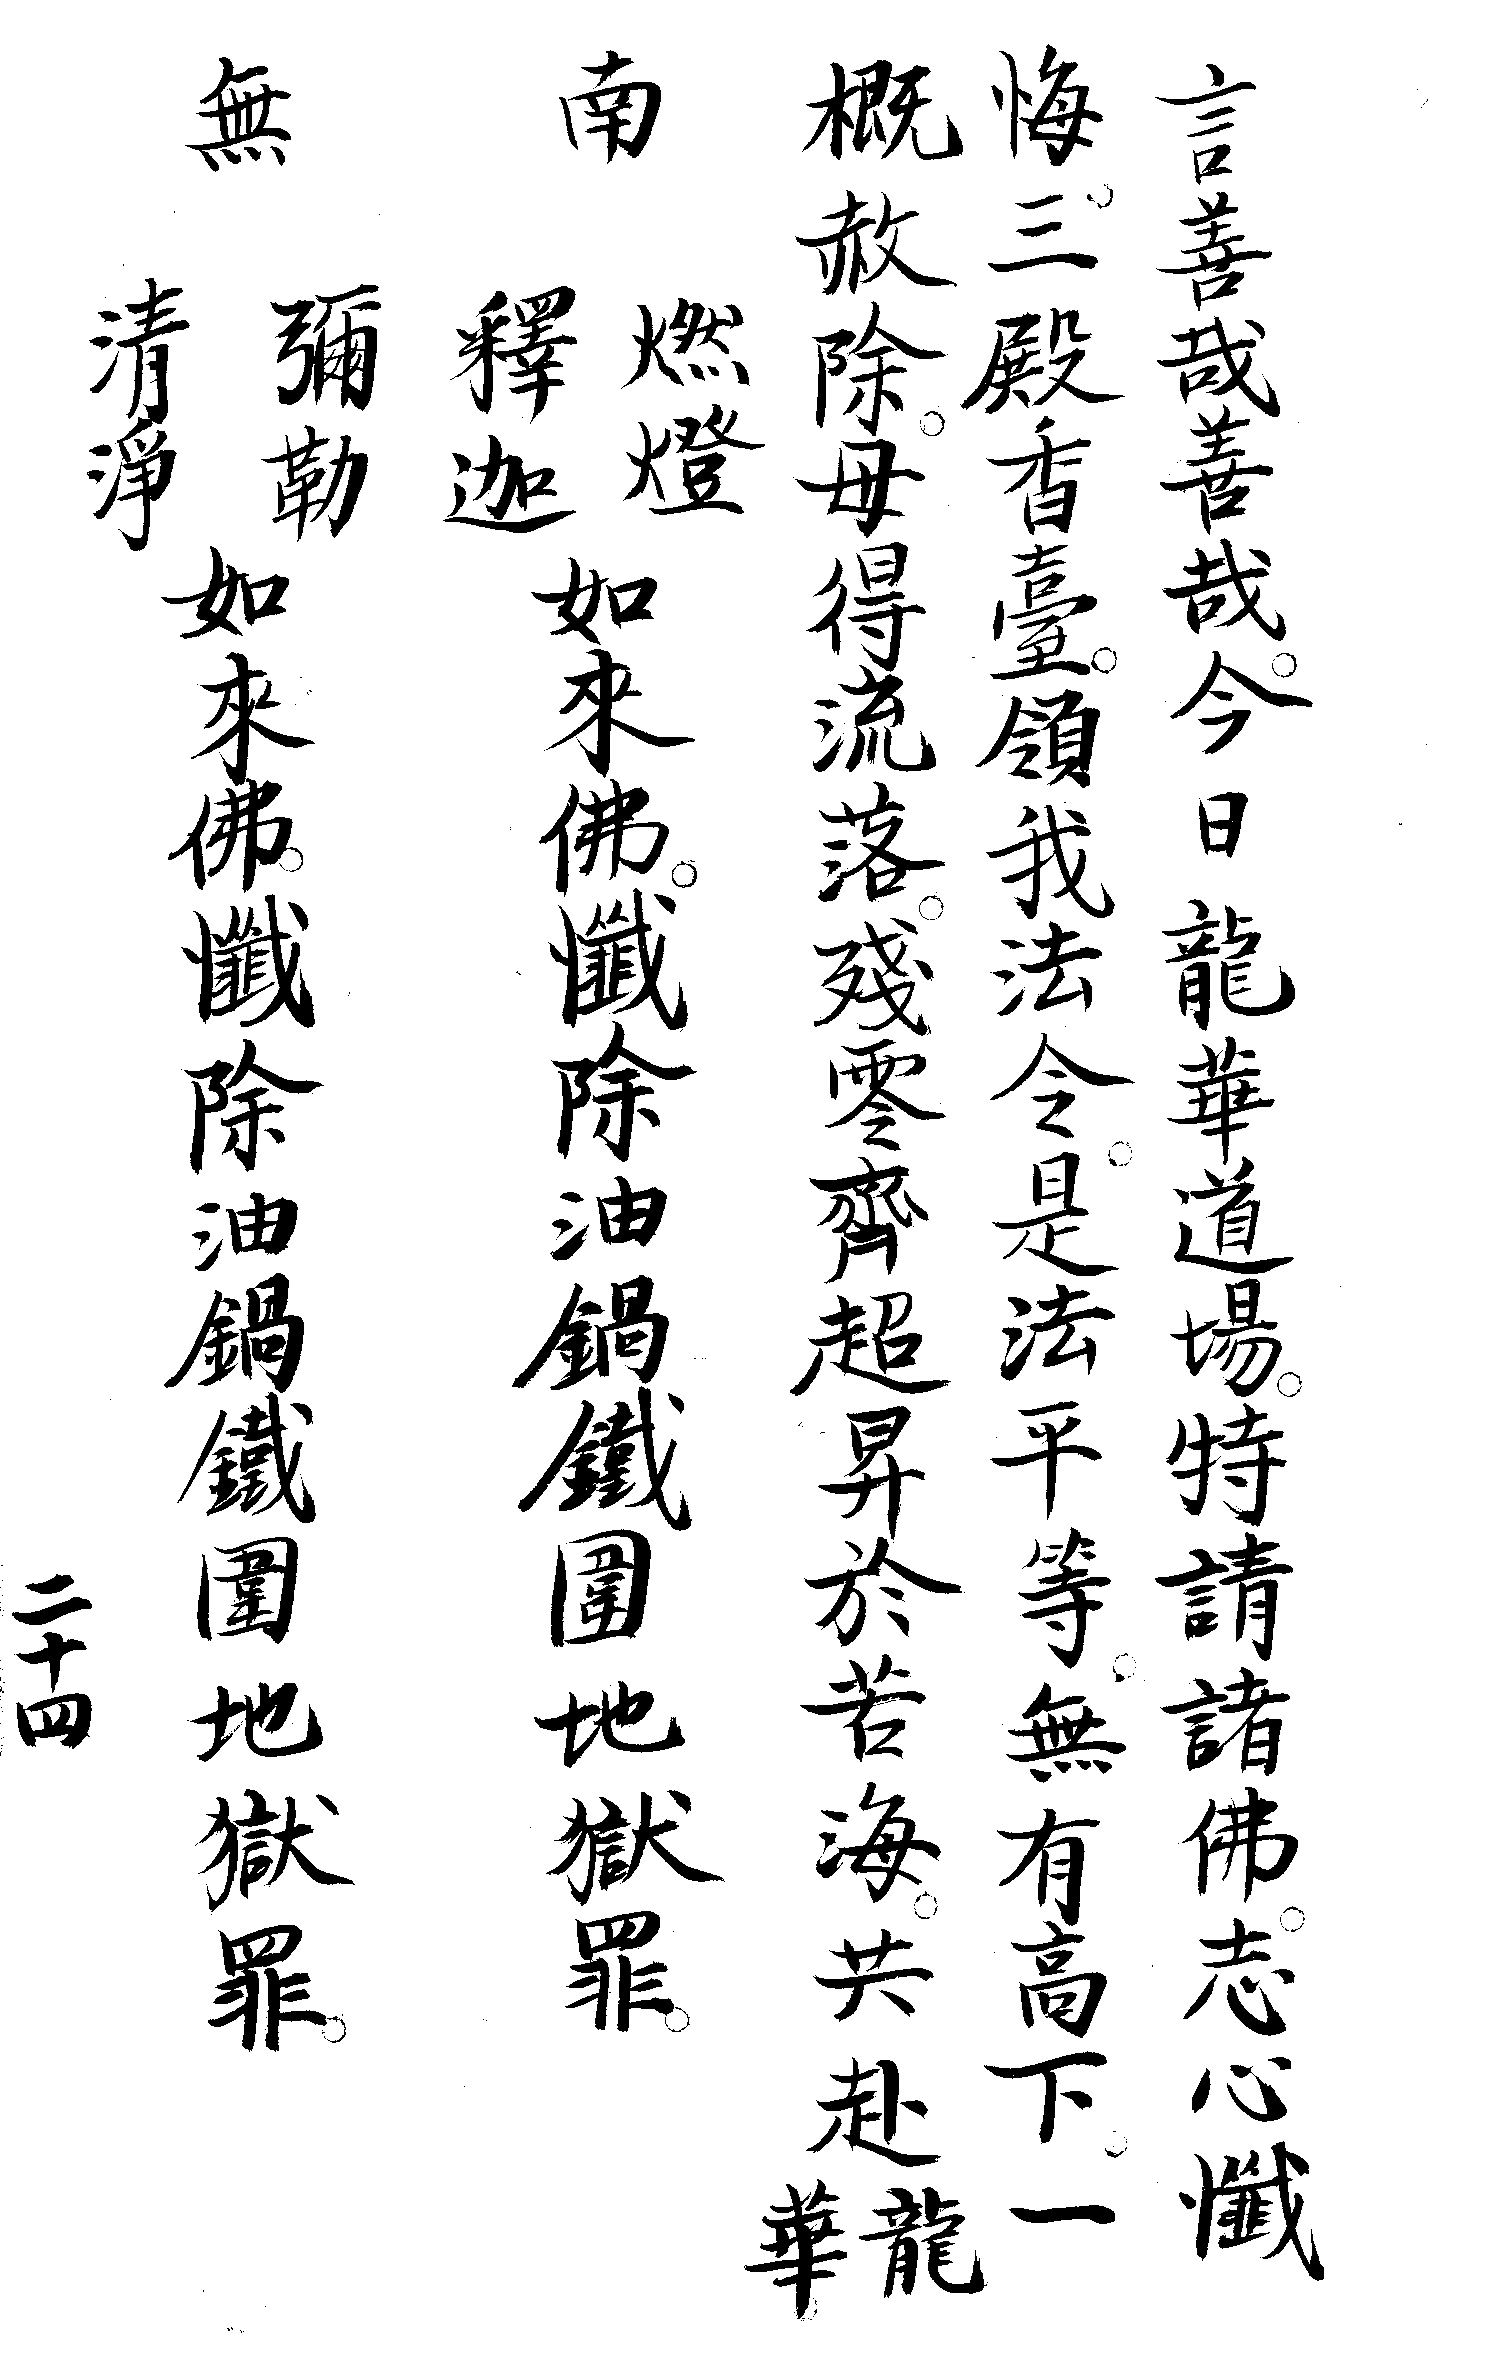 言善哉善哉。今日龍華道場。特請諸佛。志心懺
悔。三殿香臺。領我法令。是法平等。無有高下。一
概赦除。毋得流落。殘零齊超昇於苦海。共赴龍華。
南 燃燈 釋迦 如來佛。懺除油鍋鐵圍地獄罪。
無 彌勒 清淨 如來佛。懺除油鍋鐵圍地獄罪。
二十四